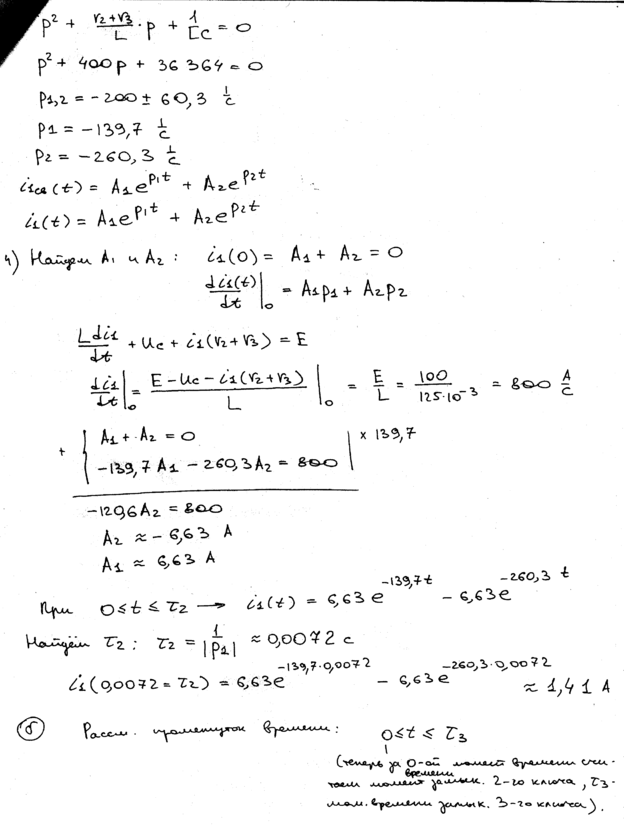 p² + (r2+r3)/L · p + 1/LC = 0
p² + 400p + 36 364 = 0
p1,2 = -200 ± 60,3 1/с
p1 = -139,7 1/с
p2 = -260,3 1/с
i1св(t) = A1e^p1t + A2e^p2t
i1(t) = A1e^p1t + A2e^p2t
4) Найдем A1 и A2 : i1(0) = A1 + A2 = 0
di1(t)/dt |0 = A1p1 + A2p2
Ldi1/dt + Uc + i1(r2+r3) = E
di1/dt |0 = (E - Uc - i1(r2+r3))/L |0 = E/L = 100/125·10^-3 = 800 А/с
+ { A1 + A2 = 0 | × 139,7
-139,7 A1 - 260,3 A2 = 800
-120,6 A2 = 800
A2 ≈ - 6,63 А
A1 ≈ 6,63 А
При 0 ≤ t ≤ τ2 → i1(t) = 6,63 e^-139,7 t - 6,63 e^-260,3 t
Найдём τ2 : τ2 = 1/|p1| ≈ 0,0072 с
i1(0,0072 = τ2) = 6,63e^-139,7·0,0072 - 6,63 e^-260,3·0,0072 ≈ 1,41 А
б Рассм. промежуток времени : 0 ≤ t ≤ τ3
(теперь за 0-ой момент времени счи-
таем момент времени замык. 2-го ключа, τ3-
мом. времени замык. 3-го ключа).